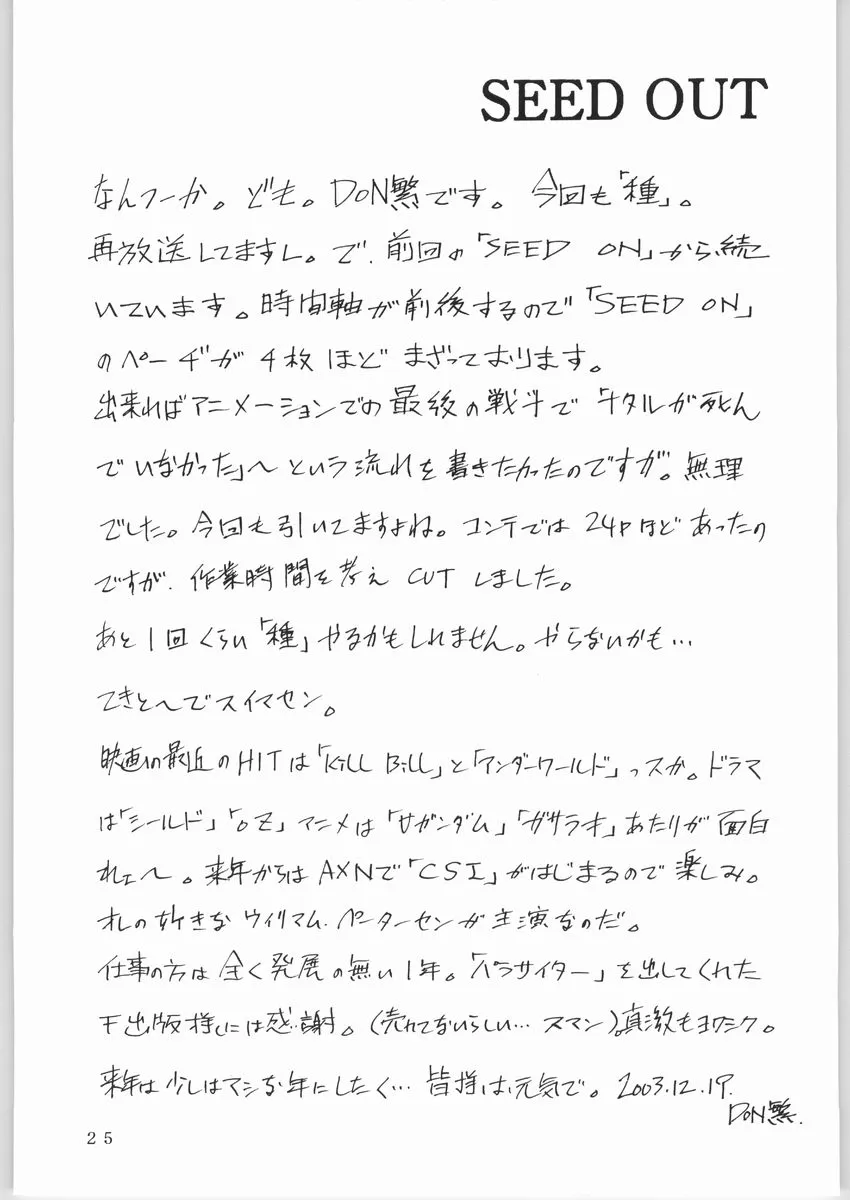 SEED OUT
なんつーか。ども。DON繁です。今回も「種」。
再放送してますし。で、前回の「SEED ON」から続
いています。時間軸が前後するので「SEED ON」
のページが4枚ほどまざっております。
出来ればアニメーションでの最後の戦斗で「ナタルが死ん
でいなかった」〜という流れを書きたかったのですが。無理
でした。今回も引いてますよね。コンテでは24Pほどあったの
ですが、作業時間を考えCUTしました。
あと1回くらい「種」やるかもしれません。やらないかも…
てきと〜でスイマセン。
映画の最近のHITは「Kill Bill」と「アンダーワールド」っスか。ドラマ
は「シールド」「OZ」アニメは「サガンダム」「ガサラオ」あたりが面白
れェ〜。来年からはAXNで「CSI」がはじまるので楽しみ。
オレの好きなウィリアム・ピーターセンが主演なのだ。
仕事の方は全く発展の無い1年。「パラサイター」を出してくれた
出版様には感謝。(売れてないらしい…スマン)真激もヨロシク。
来年は少しはマシな年にしたく…皆様は元気で。2003.12.19.
DON繁.
25